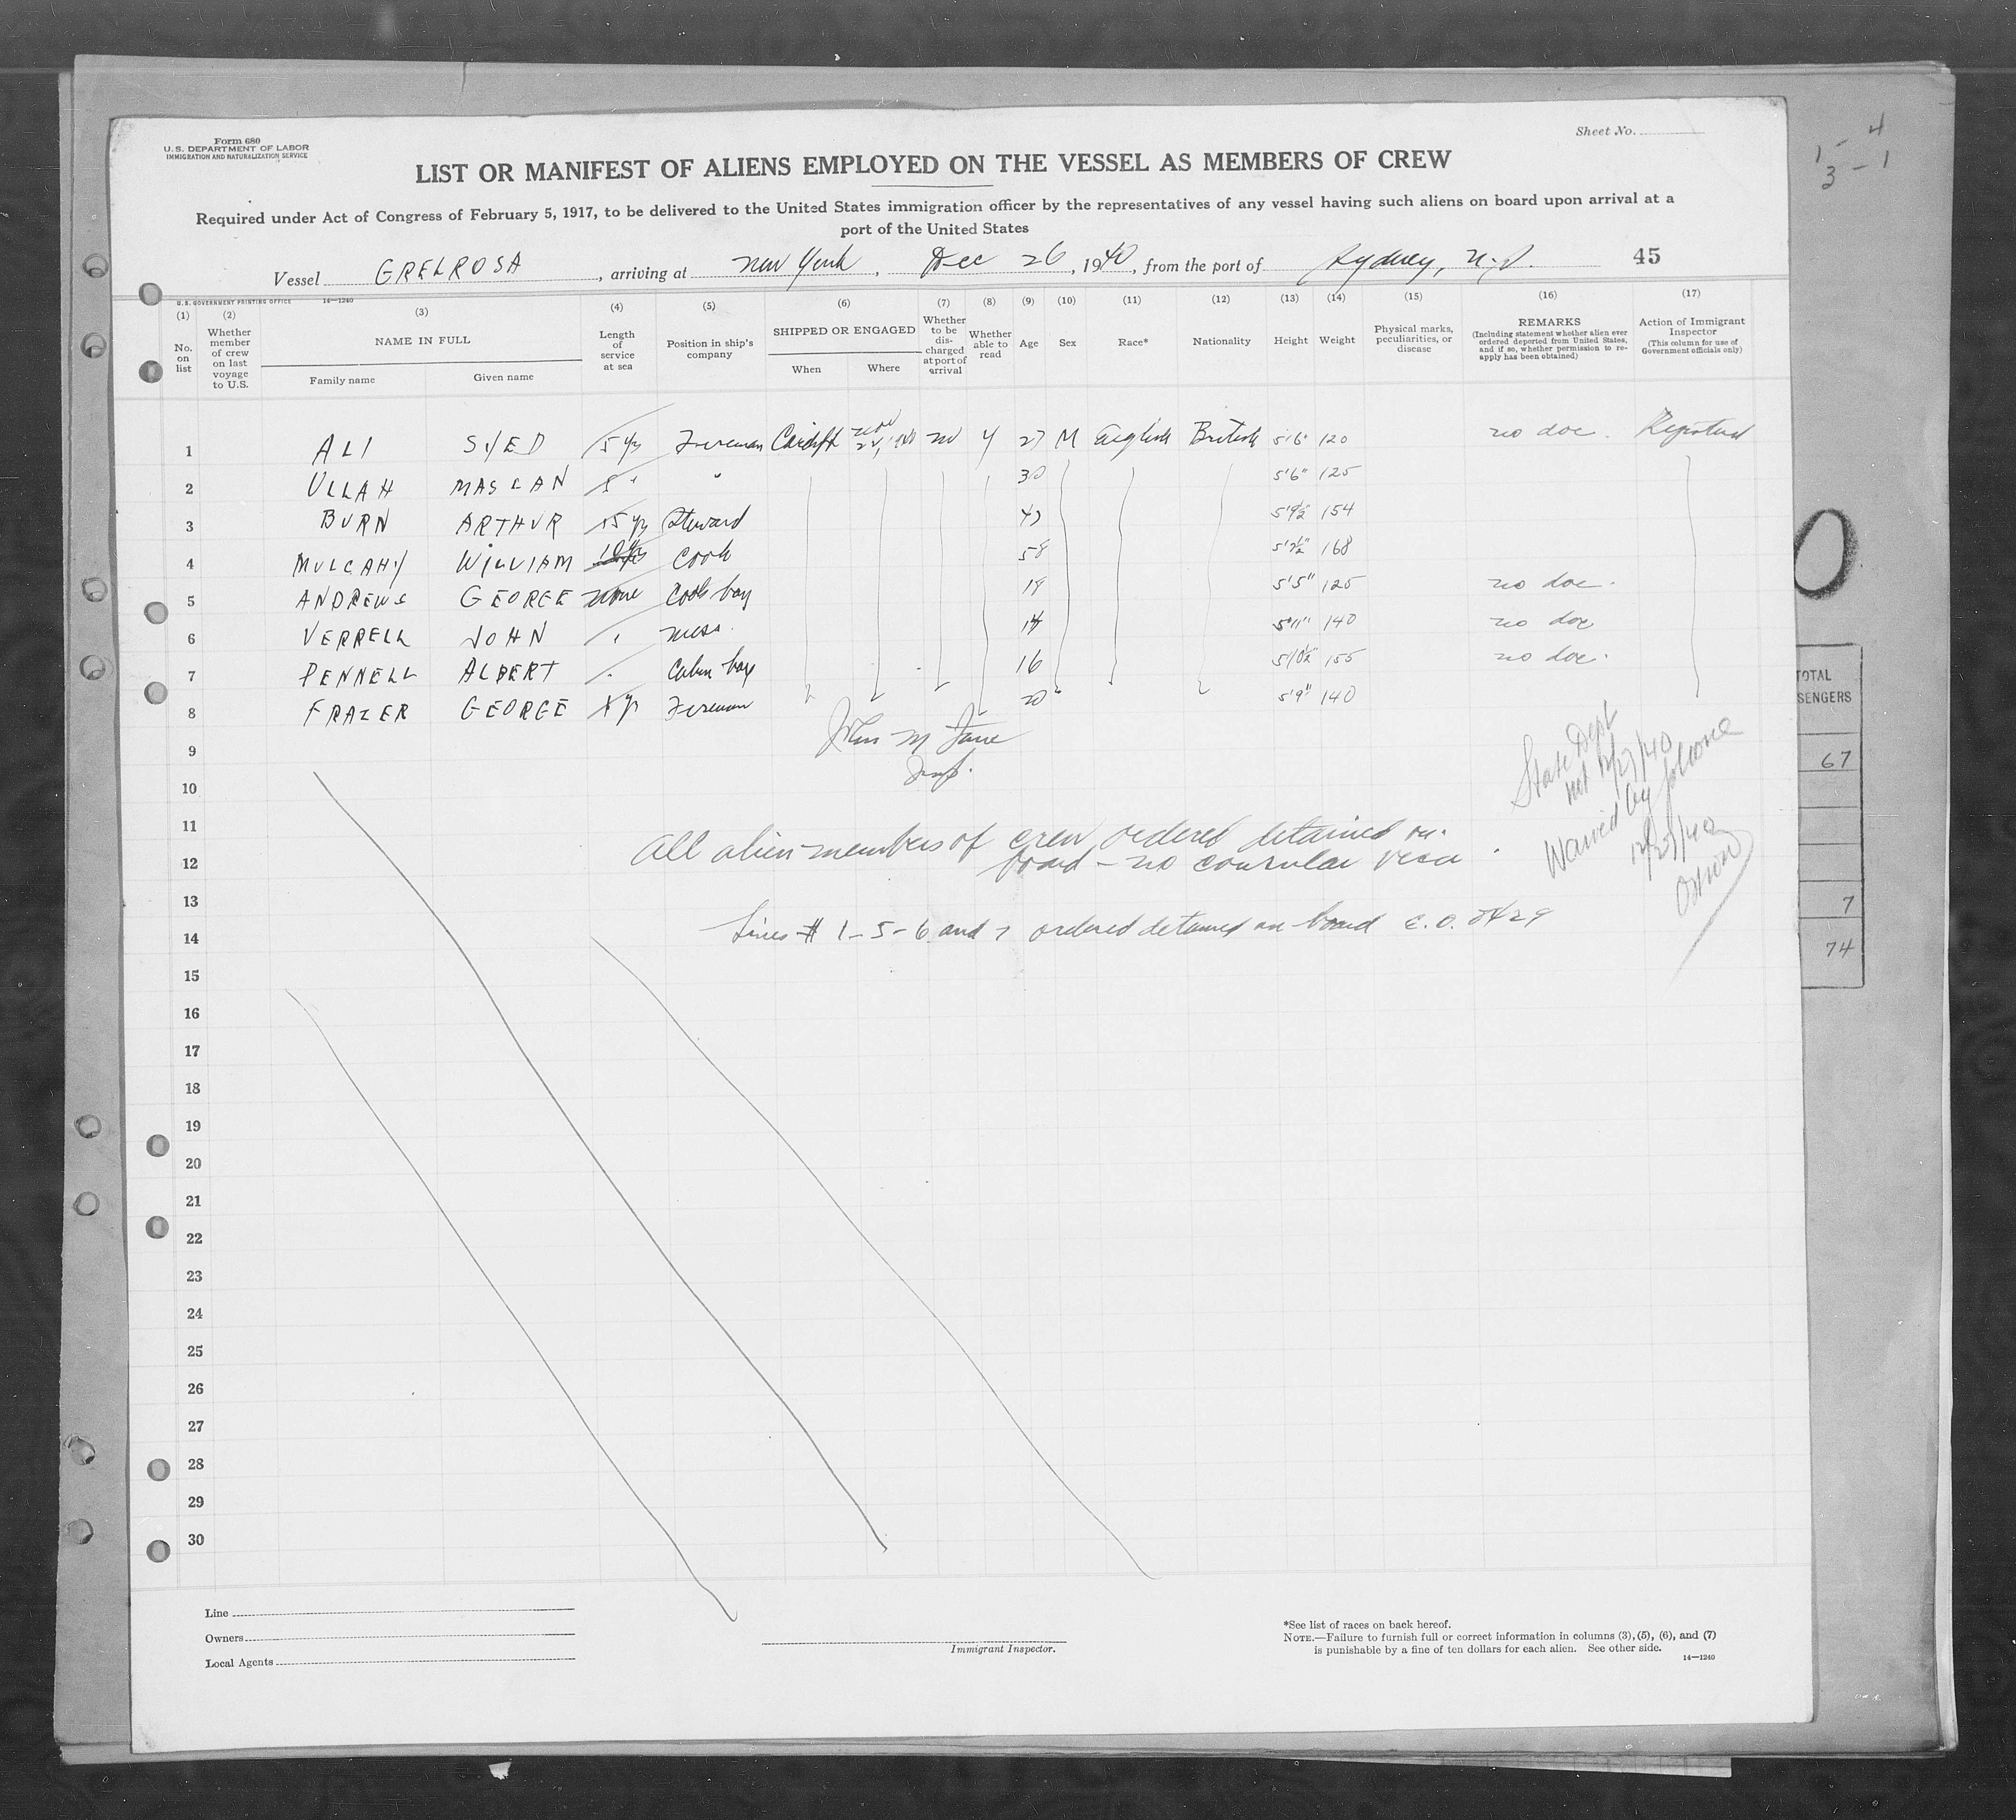 Form 680
U. S. DEPARTMENT OF LABOR
IMMIGRATION AND NATURALIZATION SERVICE
Sheet No.
1 - 4
3 - 1
LIST OR MANIFEST OF ALIENS EMPLOYED ON THE VESSEL AS MEMBERS OF CREW
Required under Act of Congress of February 5, 1917, to be delivered to the United States immigration officer by the representatives of any vessel having such aliens on board upon arrival at a
port of the United States
Vessel GRELROSA, arriving at New York, Dec 26, 1940, from the port of Sydney, 45
U. S. GOVERNMENT PRINTING OFFICE 14—1240
(1) No. on list
(2) Whether member of crew on last voyage to U.S.
(3) NAME IN FULL Family name Given name
(4) Length of service at sea
(5) Position in ship's company
(6) SHIPPED OR ENGAGED When Where
(7) Whether to be discharged at port of arrival
(8) Whether able to read
(9) Age
(10) Sex
(11) Race*
(12) Nationality
(13) Height
(14) Weight
(15) Physical marks, peculiarities, or disease
(16) REMARKS (Including statement whether alien ever ordered deported from United States, and if so, whether permission to reapply has been obtained)
(17) Action of Immigrant Inspector (This column for use of Government officials only)
1 ALI SYED 5 yrs Fireman Cardiff Nov no y 27 M English British 5'6" 120 no doc. Registered
2 ULLAH MASLAN " 30 5'6" 125
3 BURN ARTHUR 15 yrs Steward 5'9½ 154
4 MULCAHY WILLIAM Cook 58 5'7½" 168
5 ANDREWS GEORGE none Cooks boy 5'5" 125 no doc.
6 VERRELL JOHN " mess. 5'11" 140 no doc
7 PENNELL ALBERT " Cabin boy 16 5'10½" 155 no doc.
8 FRAZER GEORGE Fireman 20 5'9" 140
9
10
11
12
13
14
15
16
17
18
19
20
21
22
23
24
25
26
27
28
29
30
John M
Insp.
All alien members of crew ordered detained on
board - no consular visa
Lines # 1-5-6 and 7 ordered detained on board E.O. 8429
State Dept
12/27/40
Waived by phone
12/27/40
TOTAL
SENGERS
67
7
74
Line
Owners
Local Agents
Immigrant Inspector.
*See list of races on back hereof.
NOTE.—Failure to furnish full or correct information in columns (3), (5), (6), and (7)
is punishable by a fine of ten dollars for each alien. See other side.
14—1240